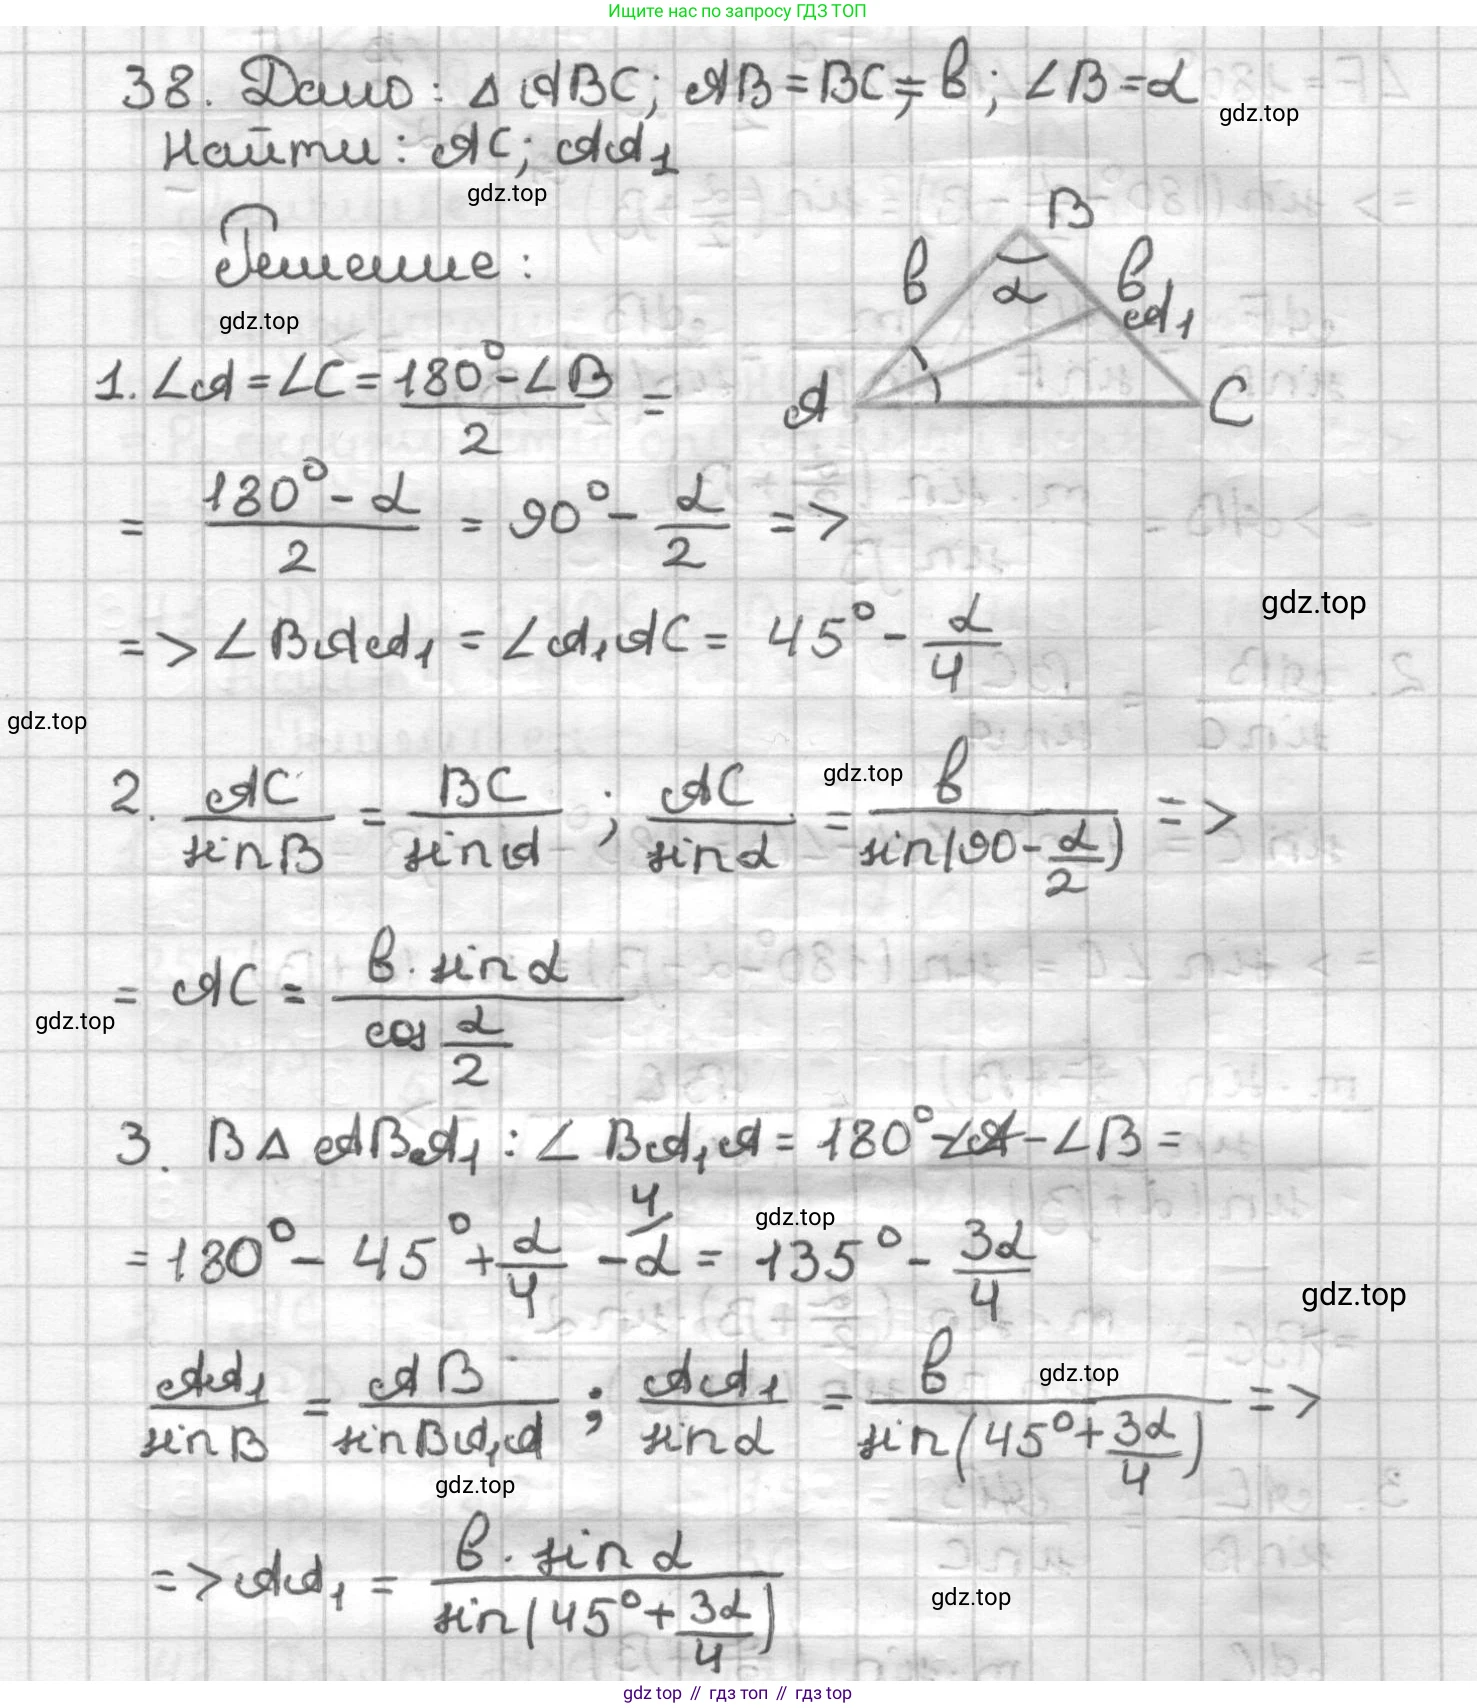 Ищите нас по запросу ГДЗ ТОП
38. Дано: △ ABC; AB = BC = b; ∠B = α
gdz.top
Найти: AC; AA₁
gdz.top
Решение:
gdz.top
B
b α b
A₁
A C
1. ∠A = ∠C = (180° - ∠B)/2 =
= (180° - α)/2 = 90° - α/2 =>
=> ∠BAA₁ = ∠A₁AC = 45° - α/4
gdz.top
gdz.top
2. AC/sin B = BC/sin A; AC/sin α = b/sin(90 - α/2) =>
gdz.top
= AC = b · sin α/cos α/2
gdz.top
3. В △ ABA₁: ∠BA₁A = 180° - ∠A - ∠B =
= 180° - 45° + α/4 - α ⁴⁄ = 135° - 3α/4
gdz.top
gdz.top
AA₁/sin B = AB/sin BA₁A; AA₁/sin α = b/sin(45° + 3α/4) =>
gdz.top
gdz.top
=> AA₁ = b · sin α/sin(45° + 3α/4)
gdz.top
gdz top // гдз топ // гдз top